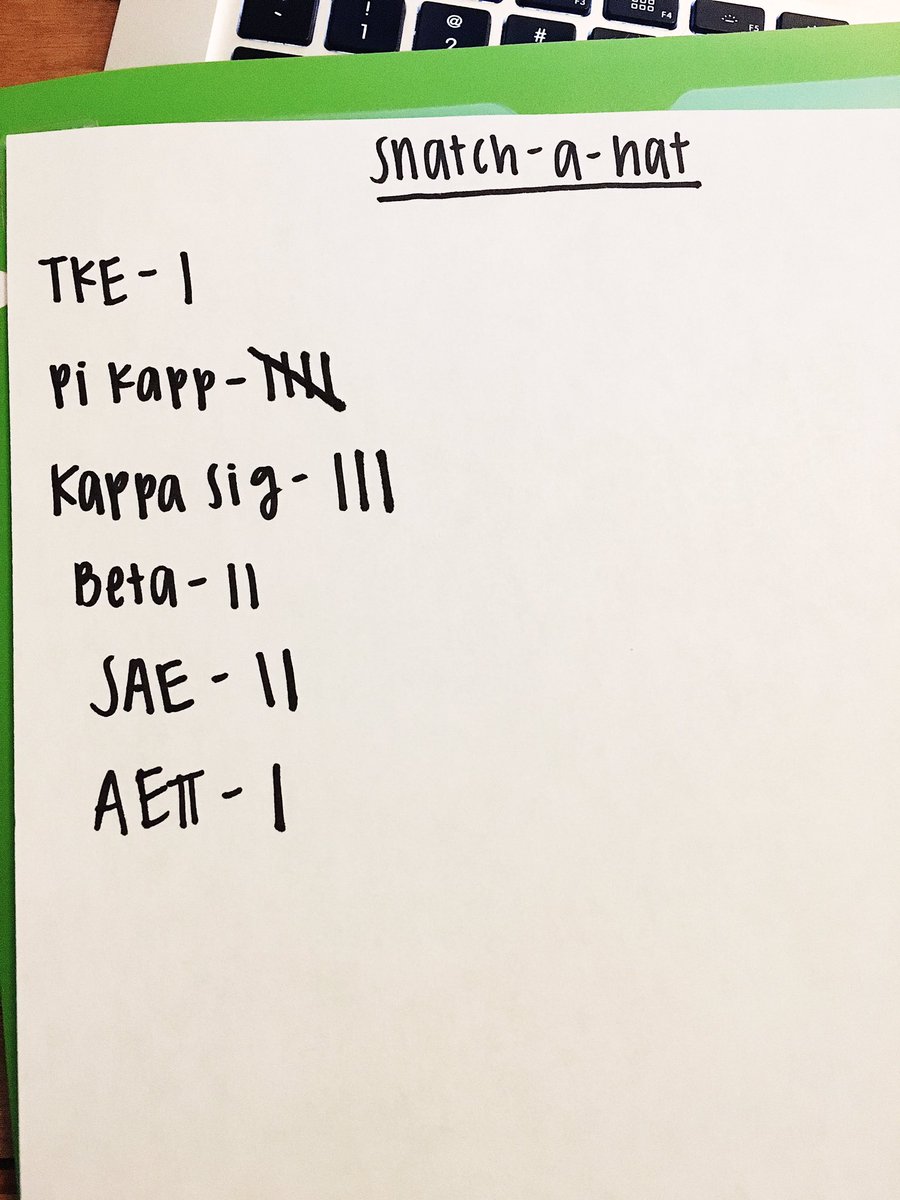 -
!
1
@
2
#
F3
F4
F5
snatch-a-hat
TKE - I
Pi Kapp - 卌
Kappa Sig - III
Beta - II
SAE - II
AEΠ - I